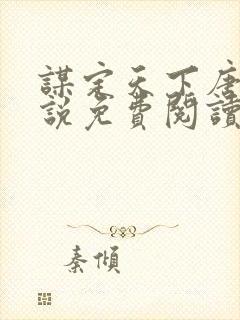 謀定天下唐
說免費閱讀
秦傾